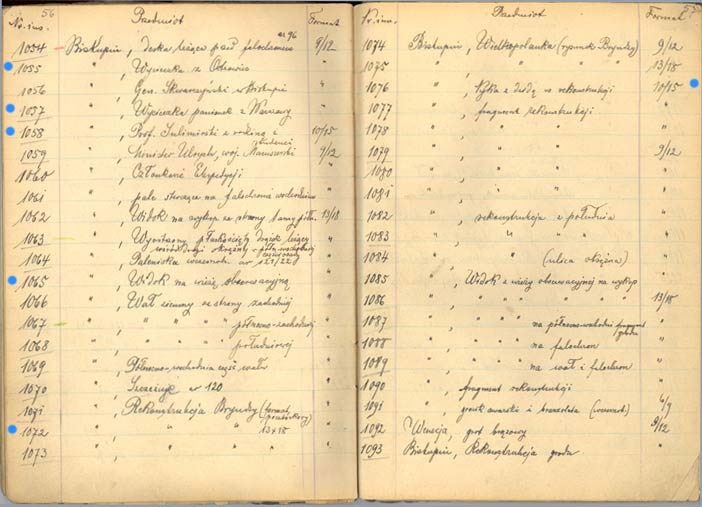 56
Nr. inw. Przedmiot Format
ar 96
1054 Biskupin, deska leżąca pod falochronem 9/12
1055 " , Wycieczka z "
1056 " , Gen. Skwarczyński w Biskupinie "
1057 " , Wycieczka panienek z Warszawy "
1058 " , Prof. Sulimirski z rodziną i 10/15
1059 " , Minister Ulrych, woj. Maruszewski 9/12
1060 " , Członkowie Ekspedycji "
1061 " , pale sterczące na falochronie "
1062 " , Widok na wykop ze strony 13/18
1063 " , "
1064 " , ar 121/22 "
1065 " , Widok na wieżę obserwacyjną "
1066 " , Wał ziemny ze strony zachodniej "
1067 " , " " " północno-zachodniej "
1068 " , " " " południowej "
1069 " , Północno-zachodnia część wału "
1070 " , ar 120 "
1071 " , Rekonstrukcja Bryndzy (format "
pocztówkowy)
1072 " , " " 13x18 "
1073 " , " " " "
57
Nr. inw. Przedmiot Format
1074 Biskupin, Wielkopolanka (rysunek Bryndzy) 9/12
1075 " , " " " 13/18
1076 " , łyżka z w rekonstrukcji 10/15
1077 " , fragment rekonstrukcji "
1078 " , " " "
1079 " , " " 9/12
1080 " , " " "
1081 " , " " "
1082 " , rekonstrukcja z południa "
1083 " , " " " "
1084 " , " (ulica okrężna) "
1085 " , Widok z wieży obserwacyjnej na wykop "
1086 " , " " " " " " 13/18
1087 " , na północno-wschodni fragment "
grodu
1088 " , na falochron "
1089 " , na wał i falochron "
1090 " , fragment rekonstrukcji "
1091 " , i bransoleta 6/9
1092 Wenecja, grot brązowy 9/12
1093 Biskupin, Rekonstrukcja grodu "